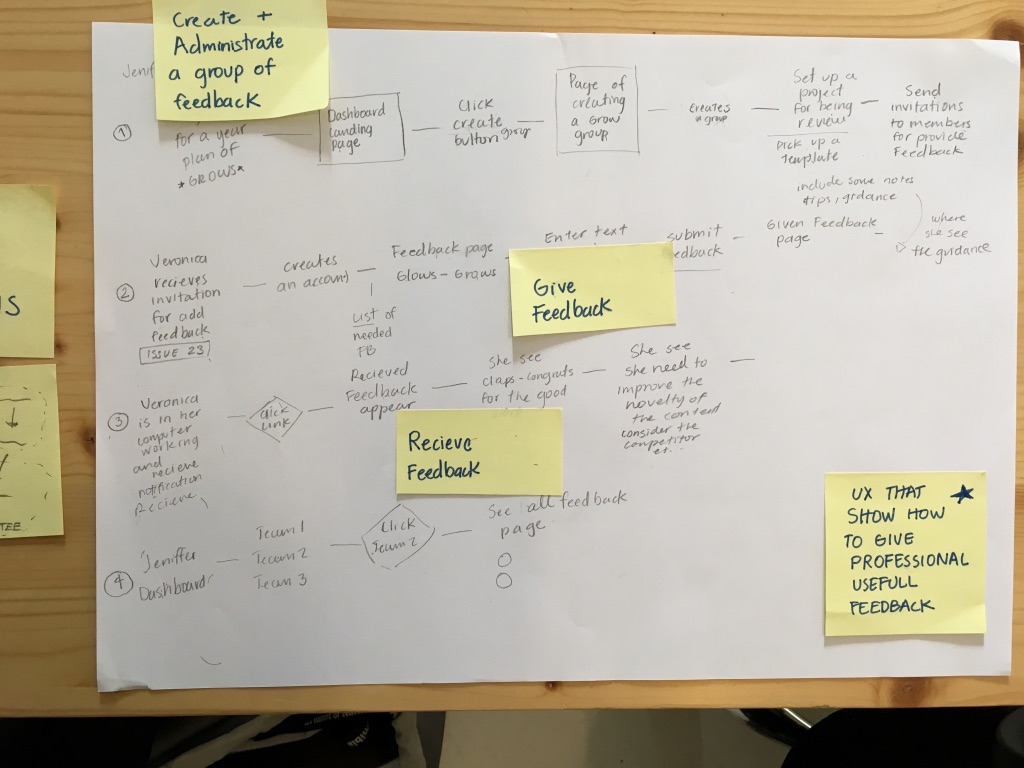 Create +
Administrate
a group of
feedback
Jeni
①
for a year
plan of
*GROWS*
Dashboard
Landing
page
Click
create
button group
Page of
creating
a Grow
group
creates
a group
Set up a
project
for being
review
Pick up a
template
Send
invitations
to members
for provide
Feedback
include some notes
tips, gridance
②
Veronica
recieves
invitation
for add
feedback
ISSUE 23
creates
an account
Feedback page
Glows - Grows
List of
needed
FB
Enter text
Give
Feedback
submit
edback
Given Feedback
page
where
she see
the guidance
③
Veronica
is in her
computer
working
and
recieve
notification
Recieve
Click
Link
Recieved
Feedback
appear
She see
claps - congrats
for the good
Recieve
Feedback
She see
she need to
improve the
novelty of
the content
consider the
competitor
et..
④
Jeniffer
Dashboard
Team 1
Team 2
Team 3
Click
Team 2
See all feedback
page
UX THAT
SHOW HOW
TO GIVE
PROFESSIONAL
USEFULL
FEEDBACK
S
TEE